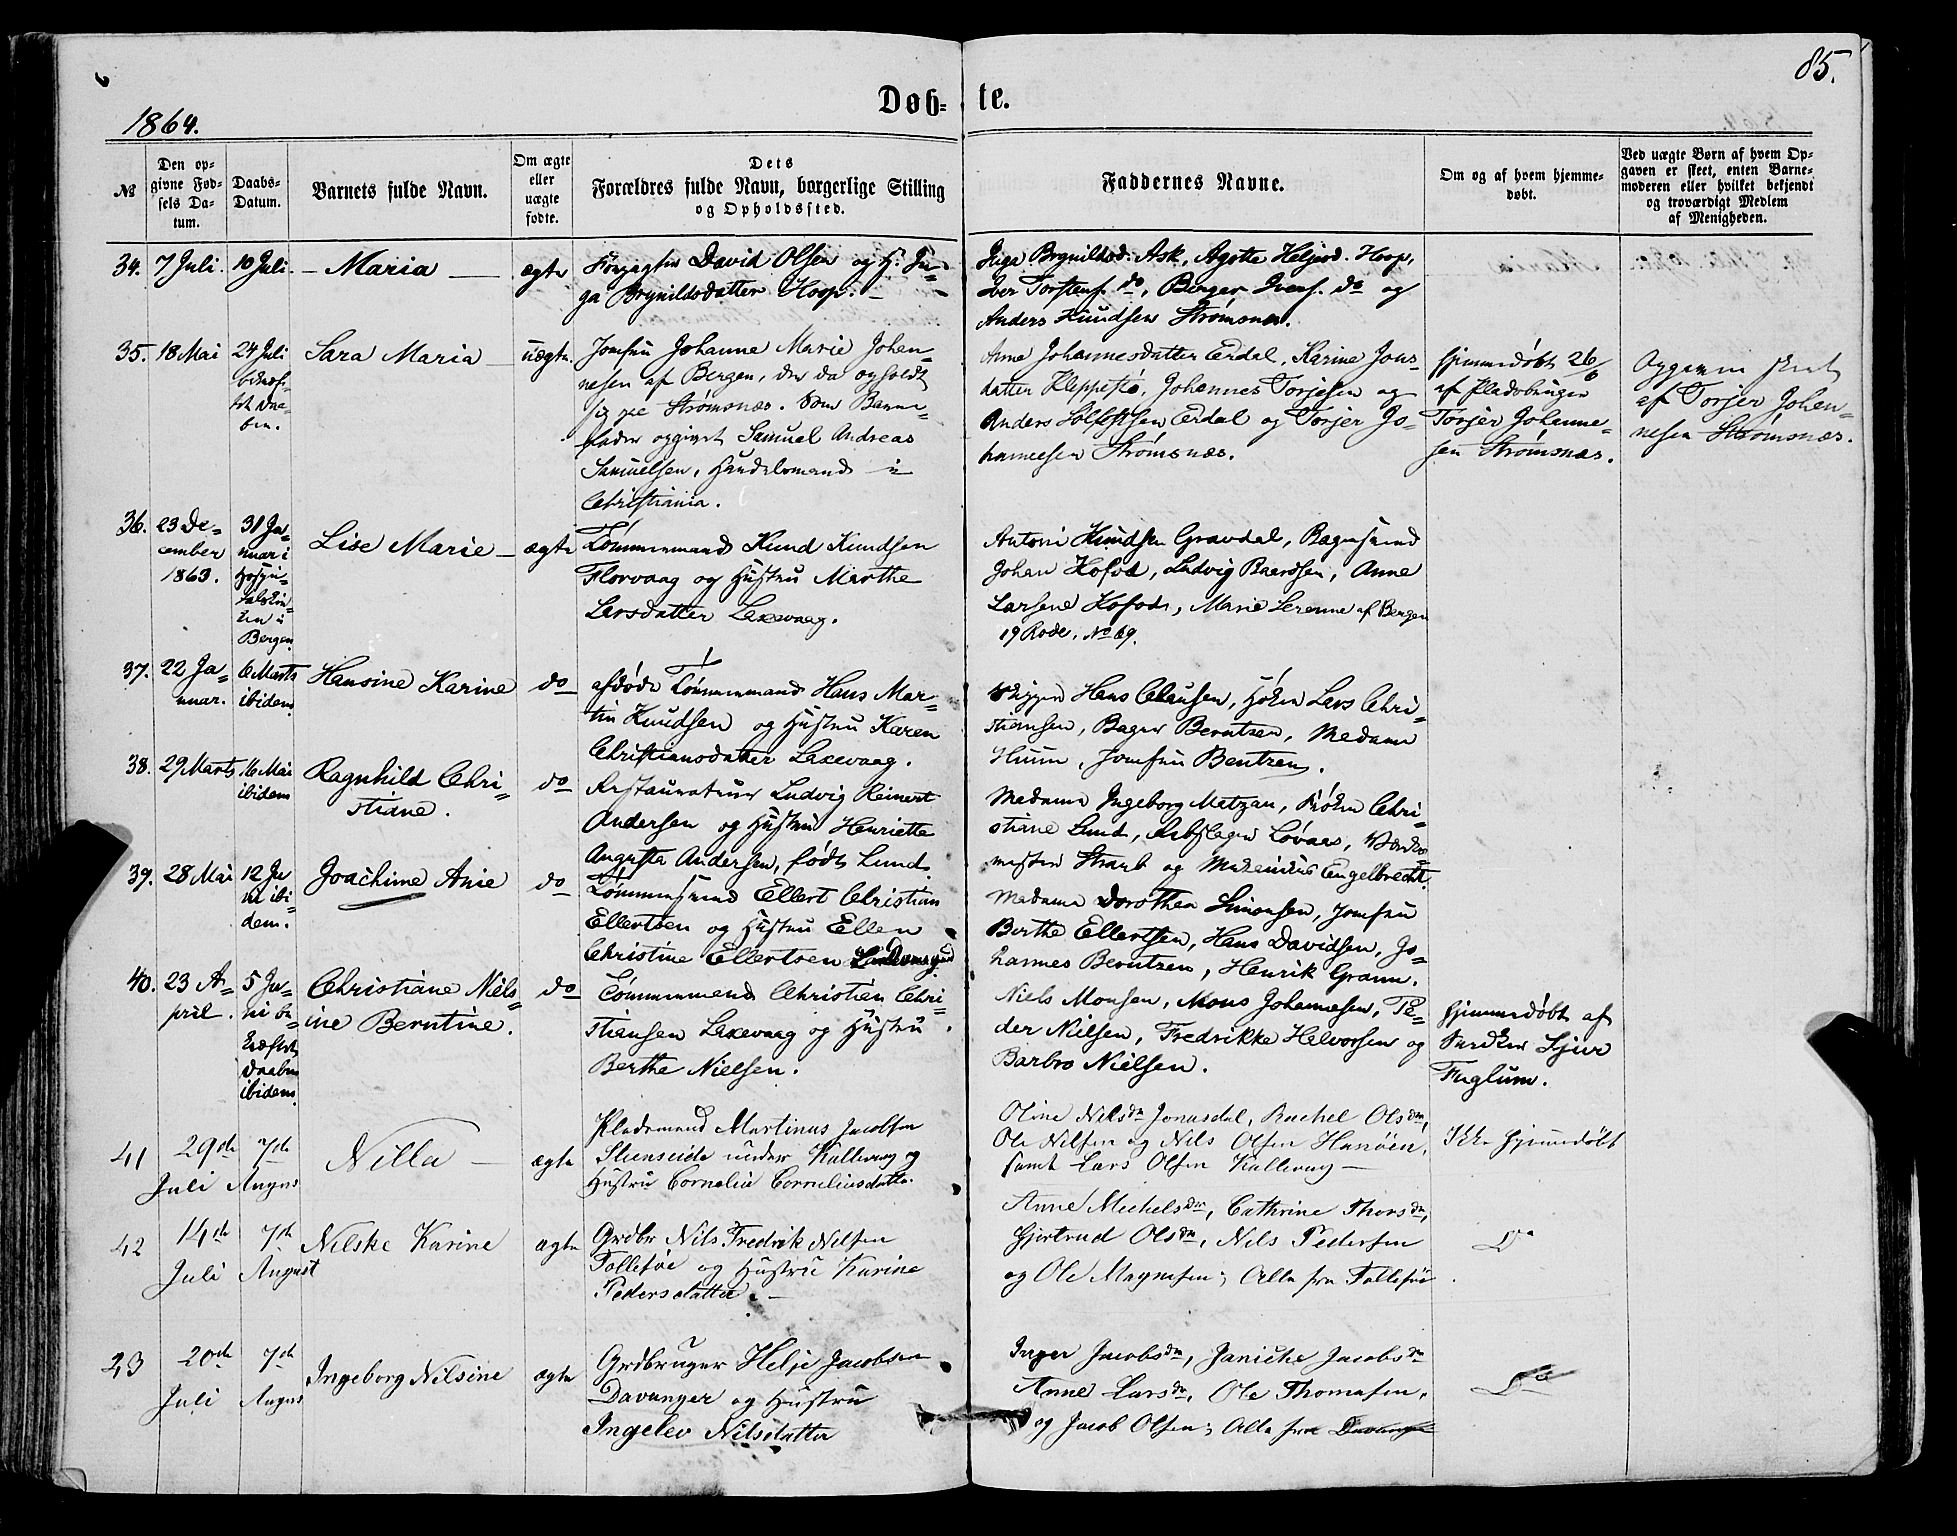 85.
Døb- te.
1864.
№
Den op-
givne Fød-
sels Da-
tum.
Daabs-
Datum.
Barnets fulde Navn.
Om ægte
eller
uægte
fødte.
Dets
Forældres fulde Navn, borgerlige Stilling
og Opholdssted.
Faddernes Navne.
Om og af hvem hjemme-
døbt.
Ved uægte Børn af hvem Op-
gaven er skeet, enten Barne-
moderen eller hvilket bekjendt
og troværdigt Medlem
af Menigheden.
34. 7 Juli. 10 Juli. – Maria – ægte
David Olsen og H. In-
ga Brynildsdatter Hoop. –
Inga Brynildsd. Ask, Agatte Heljesd. Hoop,
Iver Torstens. do, Berger Ivers. do og
Anders Knudsen Strømsnes.
35. 18 Mai
24 Juli
Sara Maria – uægte.
Jomfru Johanne Marie Johan-
nesen af Bergen, der da opholdt
sig paa Strømsnæs. Som Barne-
fader opgivet Samuel Andreas
Samuelsen, Handelsmand i
Christiania.
Anne Johannesdatter Erdal, Karine Jons-
datter Kleppestø, Johannes Torjesen og
Anders Solfestsen Erdal og Torjer Jo-
hannesen Strømsnæs.
Hjemmedøbt 26/6
af Pladsbruger
Torjer Johanne-
sen Strømsnæs.
Opgaven skeet
af Torjer Johan-
nesen Strømsnæs.
36. 23 De-
cember
1863.
31 Ja-
nuar i
Hospi-
talskir-
ken i
Bergen.
Lise Marie – ægte
Tømmermand Knud Knudsen
Florvaag og Hustru Marthe
Larsdatter Laxevaag.
Antoni Knudsen Gravdal, Bagersvend
Johan Kofod, Ludvig Baardsen, Anne
Larsene Kofod, Marie Serenne af Bergen
19 Rode, No 69.
37. 22 Ja-
nuar.
6 Marts
ibidem.
Hansine Karine do
afdøde Tømmermand Hans Mar-
tin Knudsen og Hustru Karen
Christiansdatter Laxevaag.
Skipper Hans Clausen, Høker Lars Chri-
stiansen, Bager Berntsen, Madame
Huun, Jomfru Bentzen.
38. 29 Marts
16 Mai
ibidem
Ragnhild Chri-
stiane. do
Restaurateur Ludvig Reinert
Andersen og Hustru Henriette
Augusta Andersen, født Lund.
Madame Ingeborg Metzan, Frøken Chri-
stiane Lund, Rebslager Løvaas,
mester Straub og Musikus Engelbrecht.
39. 28 Mai
12 Ju-
ni ibi-
dem.
Joachime Anie do
Tømmersvend Ellert Christian
Ellertsen og Hustru Ellen
Christine Ellertsen
Madame Dorothea Simonsen, Jomfru
Berthe Ellertsen, Hans Davidsen, Jo-
hannes Berntzen, Henrik Grann.
40. 23 A-
pril.
5 Ju-
ni be-
kræftet
Daaben
ibidem.
Christiane Niels-
ine Berntine. do
Tømmermand Christian Chri-
stiansen Laxevaag og Hustru
Berthe Nielsen.
Niels Monsen, Mons Johannesen, Pe-
der Nielsen, Fredrikke Halvorsen og
Barbro Nielsen.
Hjemmedøbt af
Snedker Sjur
Fuglum.
41 29de
Juli
7de
August
Nilla – ægte
Pladsmand Martinus Jacobsen
Steenseide under Kallevaag og
Hustru Cornelia Corneliusdatter.
Oline Nilsdtr Jonasdal, Rachel Olsdtr,
Ole Nilsen og Nils Olsen Hanøen,
samt Lars Olsen Kallevaag –
Ikke hjemmedøbt
42 14de
Juli
7de
August
Nilske Karine ægte
Grdbr Nils Fredrik Nilsen
Follesøe og Hustru Karine
Pedersdatter. –
Anne Michelsdtr, Cathrine Thorsdtr,
Gjertrud Olsdtr, Nils Pedersen
og Ole Magnesen; Alle fra Follesøe.
Do
23 20de
Juli
7de
August
Ingeborg Nilsine ægte
Grdbruger Helje Jacobsen
Davanger og Hustru
Ingelev Nilsdatter
Inger Jacobsdtr, Janicke Jacobsdtr
Anne Larsdtr, Ole Thomasen,
og Jacob Olsen; Alle fra Davanger
Do